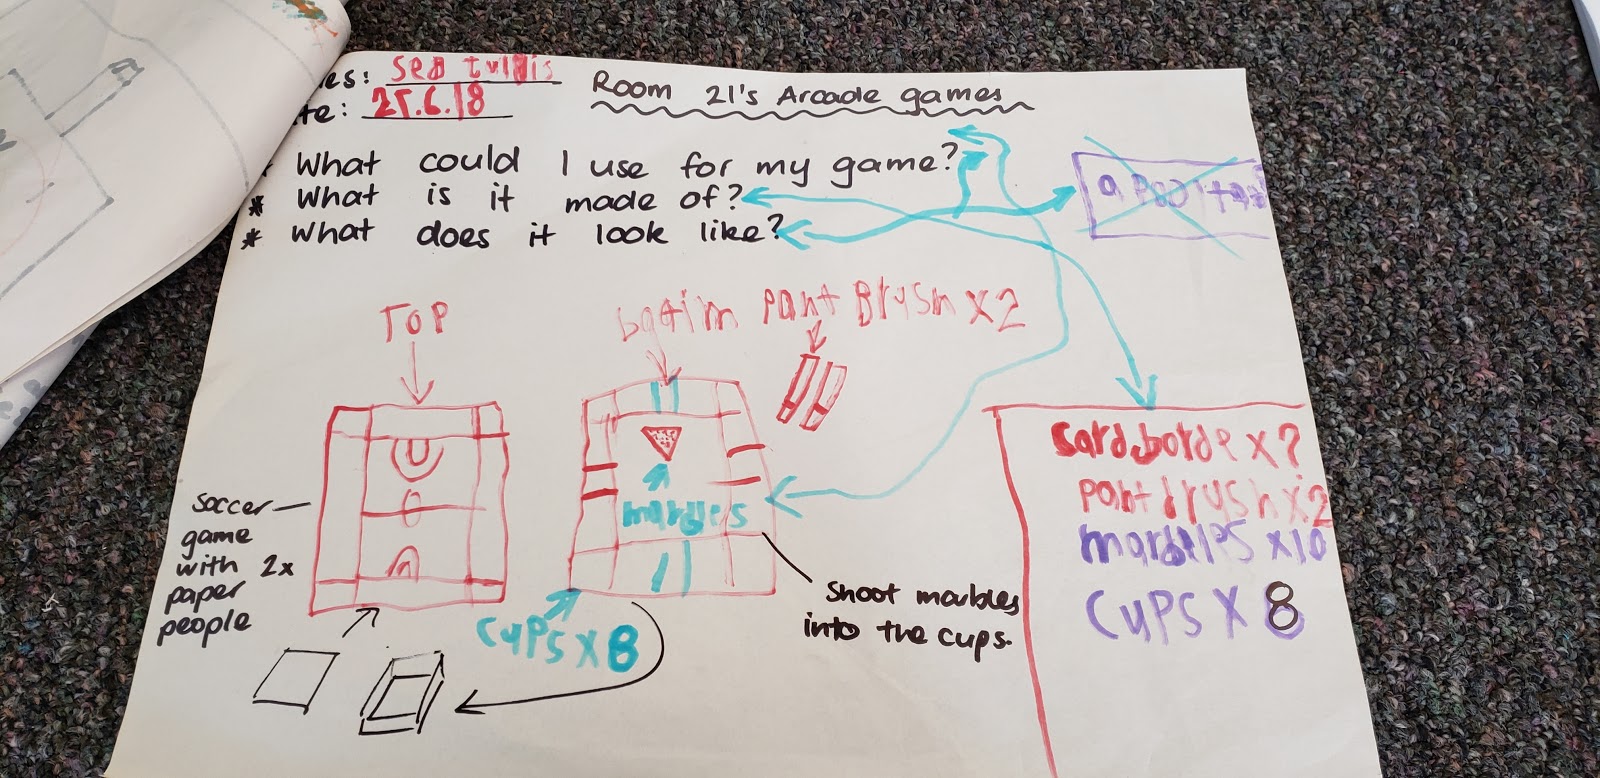 es: seb
te: 25.6.18
Room 21's Arcade games
* What could I use for my game?
* What is it made of?
* What does it look like?
a pool
TOP
botim
pant Brysh x2
marbles
soccer
game
with 2x
paper
people
cups x 8
Shoot marbles
into the cups.
cardborde x?
pant brysh x2
marbles x10
cups x 8